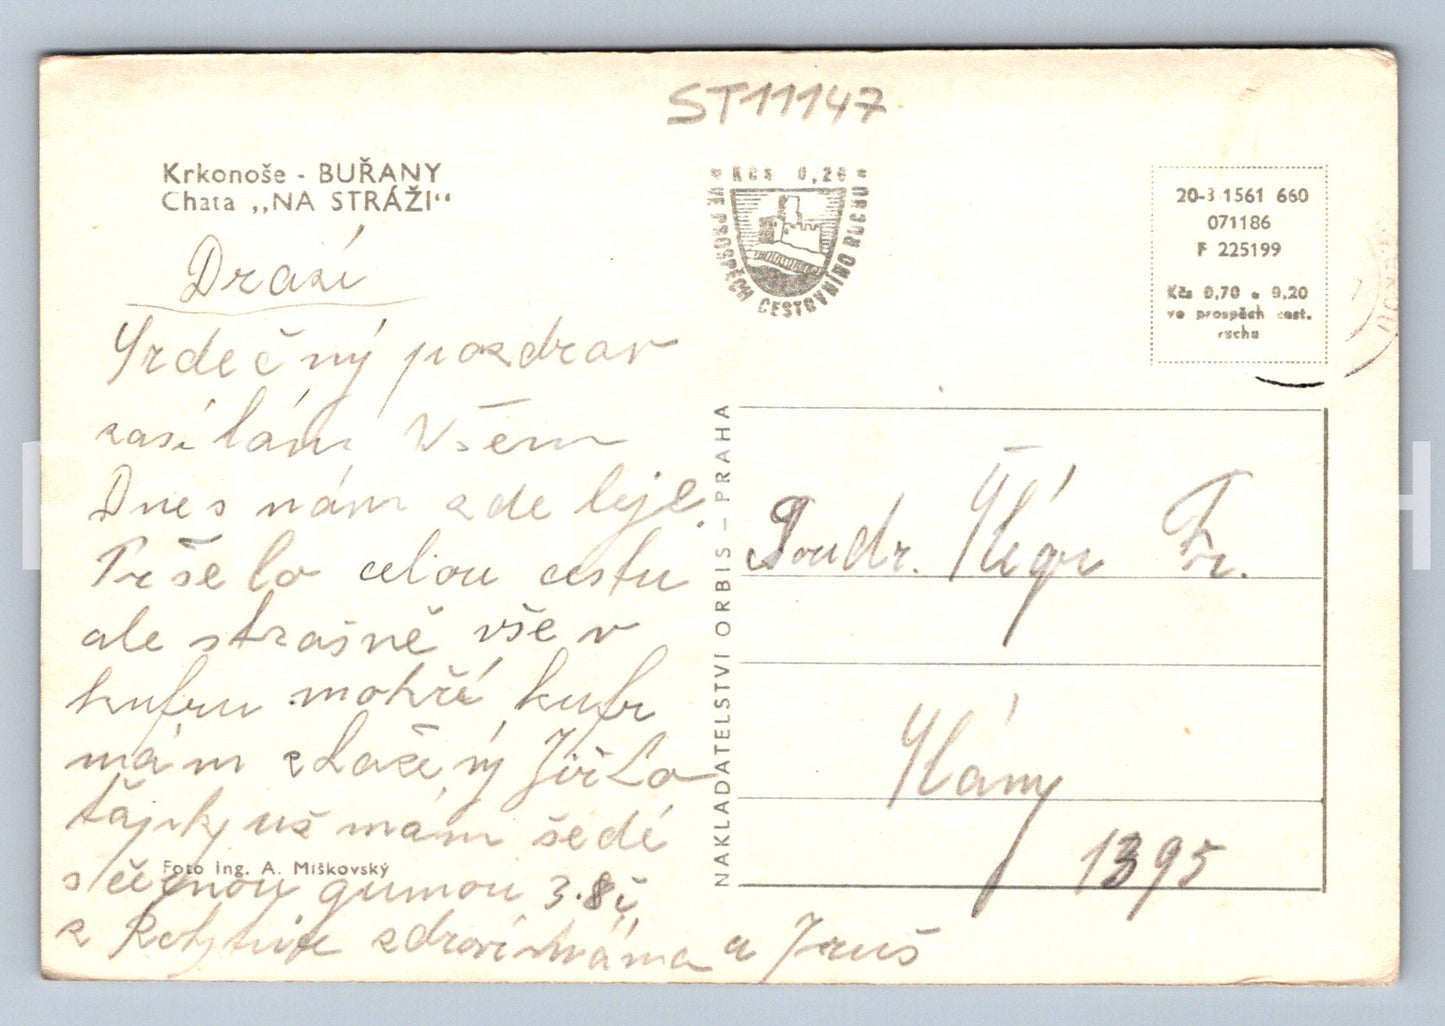 ST11147
Krkonoše - BUŘANY
Chata „NA STRÁŽI“
Kčs 0,20
VE PROSPĚCH CESTOVNÍHO RUCHU
20-3 1561 660
071186
F 225199
Kčs 0,70 + 0,20
ve prospěch cest.
ruchu
Drazí
Srdečný pozdrav
zasílám Všem
Dnes nám zde leje.
Pršelo celou cestu
ale strašně vše v
kufru mokré kufr
mám zdažený Jirka
tájky už mám šedé
s černou gumou 3.8č
z Rokytnice zdraví máma a Jruš
Foto Ing. A. Miškovský
NAKLADATELSTVÍ ORBIS – PRAHA
Soudr. Fr.
Slány
1395